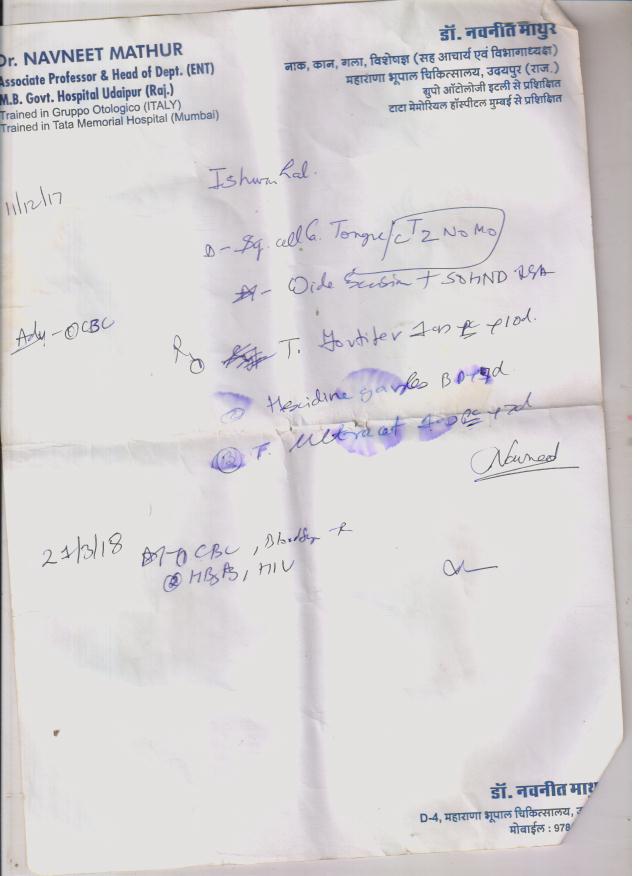 Dr. NAVNEET MATHUR
Associate Professor & Head of Dept. (ENT)
M.B. Govt. Hospital Udaipur (Raj.)
Trained in Gruppo Otologico (ITALY)
Trained in Tata Memorial Hospital (Mumbai)
डॉ. नवनीत माथुर
नाक, कान, गला, विशेषज्ञ (सह आचार्य एवं विभागाध्यक्ष)
महाराणा भूपाल चिकित्सालय, उदयपुर (राज.)
ग्रुपो ऑटोलोजी इटली से प्रशिक्षित
टाटा मेमोरियल हॉस्पीटल मुम्बई से प्रशिक्षित
11/12/17
D - Sq. cell Ca. Tongue/cT2 N0 M0
Wide Excision + SOHND
Adv - ① CBC
T.
② Hexidine gargles BD
③ T. Ultracet
Navneet
21/3/18
① CBC,
② HBsAg, HIV
डॉ. नवनीत माथ
D-4, महाराणा भूपाल चिकित्सालय,
मोबाईल : 978